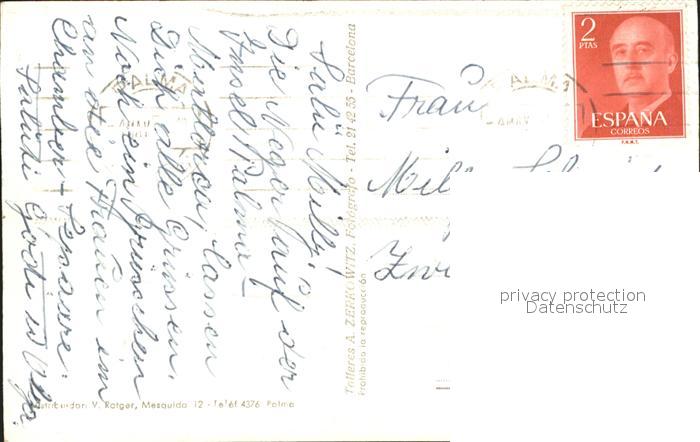 Salü Milly!
Die Neger auf der
Insel Palma
Mallorca, lassen
Dich alle Grüssen.
Noch ein Grüsschen
an die Frauen im
Chamber +
Salüti Godi u Vga.
Talleres A. ZERKOWITZ, Fotógrafo - Tel. 21 42 55 - Barcelona
Prohibida la reproducción
Distribuidor: V. Rotger, Mesquida 12 - Teléf. 4376 Palma
PALMA
2
PTAS
ESPAÑA
CORREOS
F.N.M.T.
Frau
privacy protection
Datenschutz